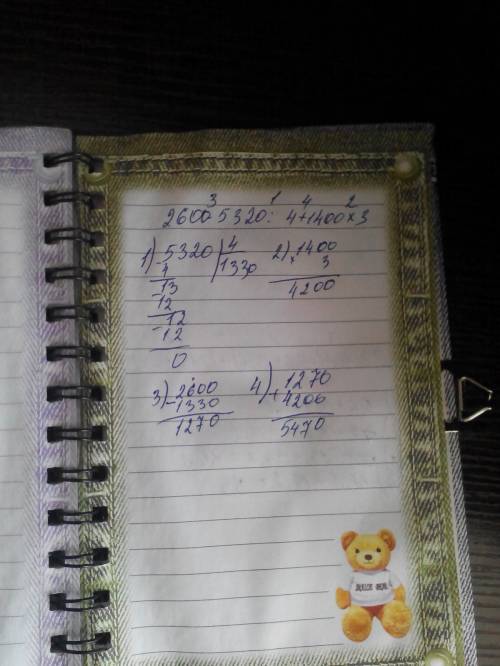 3 1 4 2
2600-5320:4+1400×3
1) 5320 | 4
- 4 1330
13
12
- 12
12
0
2) 1400
× 3
4200
3) 2600
- 1330
1270
4) 1270
+ 4200
5470